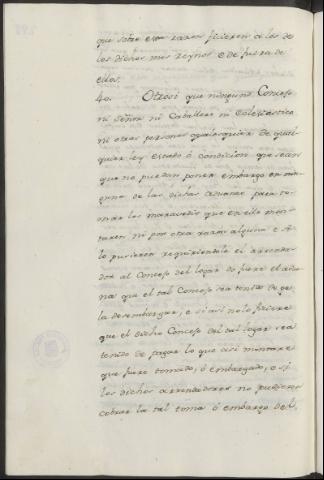 que sobre esta razon ficieren á los de
los dichos mis reynos é de fuera de
ellos.
40. Otrosi que ninguno Concejo
ni Señor ni Caballero ni Eclesiastico
ni otras personas qualesquiera de qual
quier ley estado ó condicion que sean
que no puedan poner embargo en nin
guna de las dichas aduanas para to
mar los maravedis que en ella mon
taren ni por otra razon alguna é si
lo pusieren requiriendole el arrenda
dor al Concejo del logar do fuere el adua
na que el tal Concejo sea tenudo de ge
la desembargar, é si asi no lo ficiere
que el dicho Concejo del tal logar sea
tenido de pagar lo que asi montare
que fuere tomado, ó embargado, é si
los dichos arrendadores no pudieren
cobrar la tal toma ó embargo del